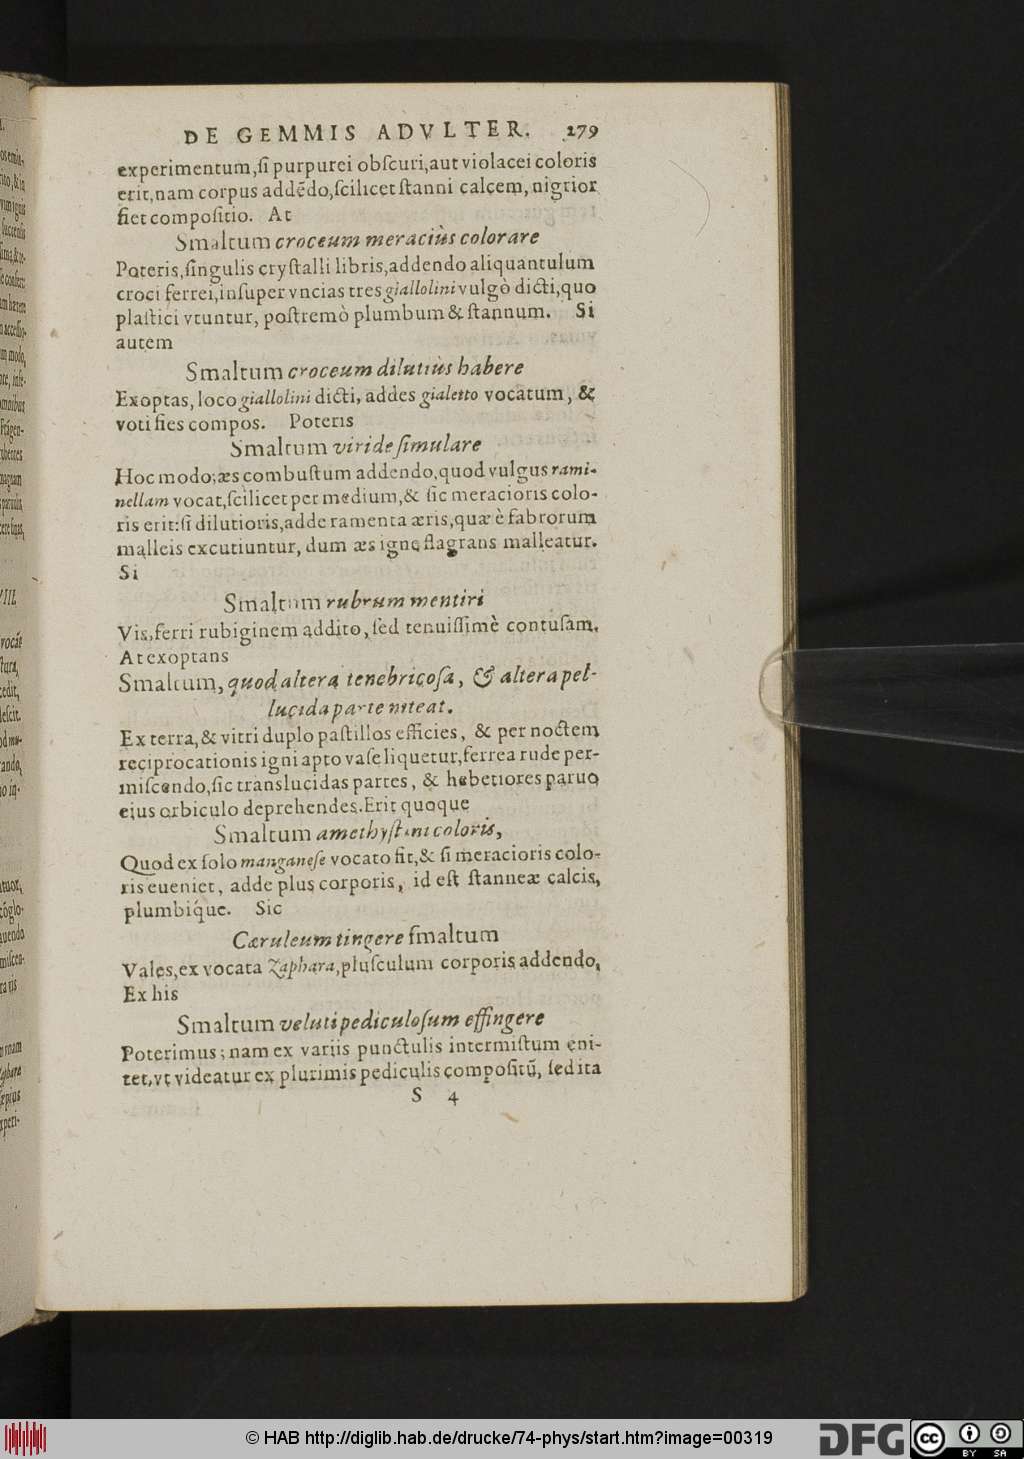 DE GEMMIS ADVLTER. 279
experimentum,ſi purpurei obſcuri,aut violacei coloris
erit,nam corpus addẽdo,ſcilicet ſtanni calcem, nigrior
fiet compoſitio. At
Smaltum croceum meraciùs colorare
Poteris,ſingulis cryſtalli libris,addendo aliquantulum
croci ferrei,inſuper vncias tres giallolini vulgò dicti,quo
plaſtici vtuntur, poſtremò plumbum & ſtannum. Si
autem
Smaltum croceum dilutiùs habere
Exoptas, loco giallolini dicti, addes gialetto vocatum, &
voti fies compos. Poteris
Smaltum viride ſimulare
Hoc modo; æs combuſtum addendo,quod vulgus rami-
nellam vocat,ſcilicet per medium,& ſic meracioris colo-
ris erit:ſi dilutioris,adde ramenta æris,quæ è fabrorum
malleis excutiuntur, dum æs igne flagrans malleatur.
Si
Smaltum rubrum mentiri
Vis,ferri rubiginem addito, ſed tenuiſſimè contuſam.
At exoptans
Smaltum, quod altera tenebricoſa, & altera pel-
lucida parte niteat.
Ex terra,& vitri duplo paſtillos efficies, & per noctem
reciprocationis igni apto vaſe liquetur,ferrea rude per-
miſcendo,ſic translucidas partes, & hebetiores paruo
eius orbiculo deprehendes.Erit quoque
Smaltum amethyſtini coloris,
Quod ex ſolo manganeſe vocato fit,& ſi meracioris colo-
ris eueniet, adde plus corporis, id eſt ſtanneæ calcis,
plumbíque. Sic
Cæruleum tingere ſmaltum
Vales,ex vocata Zaphara,pluſculum corporis addendo,
Ex his
Smaltum veluti pediculoſum effingere
Poterimus; nam ex variis punctulis intermiſtum eni-
tet,vt videatur ex plurimis pediculis compoſitũ, ſed ita
S 4
© HAB http://diglib.hab.de/drucke/74-phys/start.htm?image=00319
DFG
cc BY SA